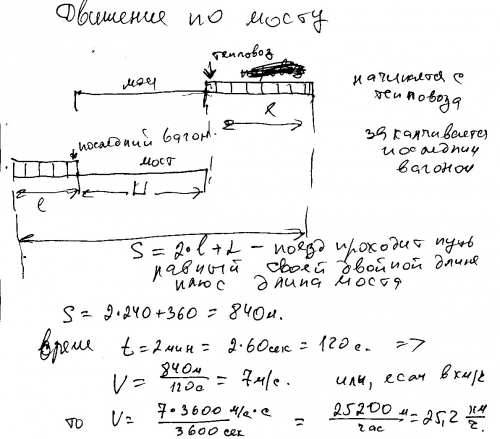 Движение по мосту
тепловоз
мост
начинается с
тепловоза
l
последний вагон.
мост
заканчивается
последним
вагоном
l
L
S = 2·l + L – поезд проходит путь
равный своей двойной длине
плюс длина моста
S = 2·240 + 360 = 840 м.
Время t = 2 мин = 2·60 сек = 120 с. =>
V = 840 м / 120 с = 7 м/с. или, если в км/ч
то V = 7·3600 м/с·с / 3600 сек = 25200 м / час = 25,2 км/ч.